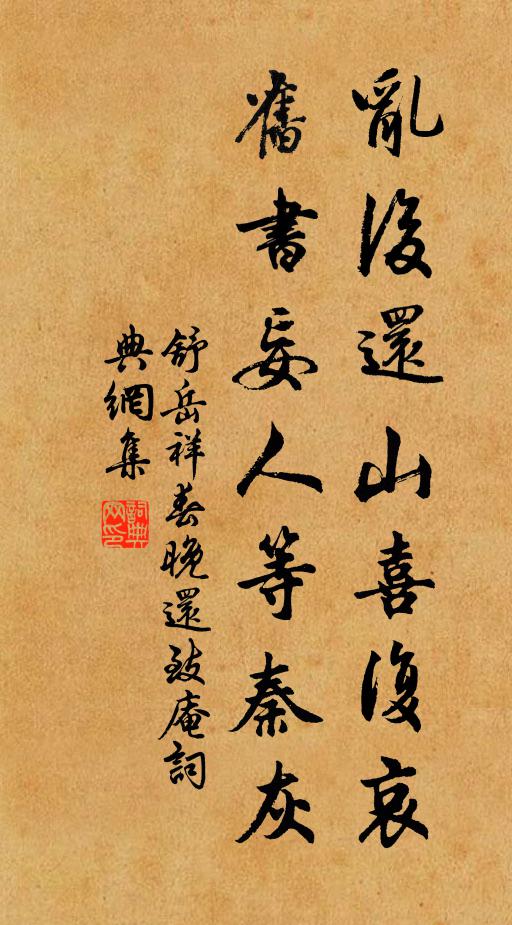 亂後還山喜復哀
舊書妄人等秦灰
舒岳祥春晚還致庵詞
典網集
詞典网印